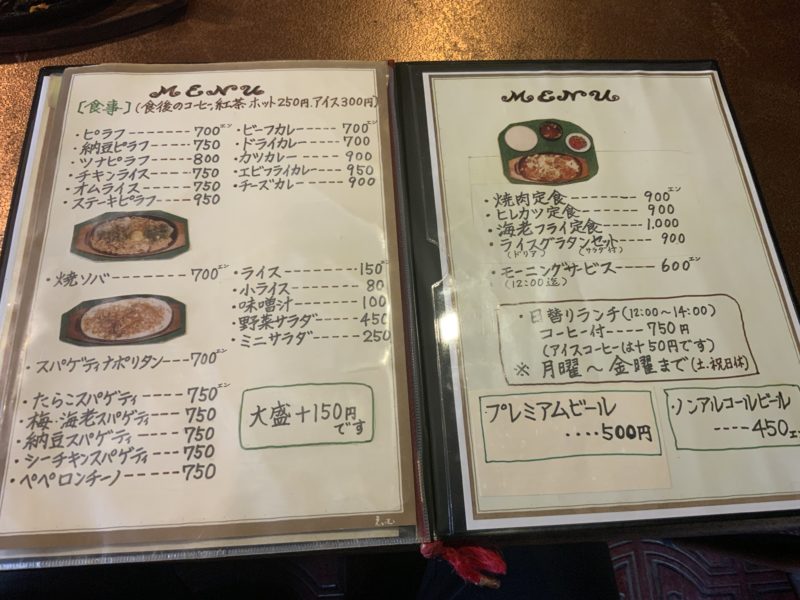 MENU
[食事] (食後のコーヒー、紅茶 ホット250円、アイス300円)
・ピラフ-------700エン
・納豆ピラフ-----750
・ツナピラフ-----800
・チキンライス----750
・オムライス-----750
・ステーキピラフ---950
・ビーフカレー-----700エン
・ドライカレー-----700
・カツカレー------900
・エビフライカレー---950
・チーズカレー-----900
・焼ソバ--------700エン
・ライス--------150エン
・小ライス-------80
・味噌汁-------100
・野菜サラダ-----450
・ミニサラダ-----250
・スパゲティナポリタン---700エン
・たらこスパゲティ----750エン
・梅・海老スパゲティ---750
・納豆スパゲティ-----750
・シーチキンスパゲティ--750
・ペペロンチーノ-----750
大盛+150円
です
MENU
・焼肉定食--------900エン
・ヒレカツ定食------900
・海老フライ定食-----1,000
・ライスグラタンセット----900
(ドリア) (サラダ付)
・モーニングサービス-----600エン
(12:00迄)
・日替りランチ(12:00～14:00)
コーヒー付----750円
(アイスコーヒーは+50円です)
※ 月曜～金曜まで(土・祝日休)
プレミアムビール
‥‥500円
ノンアルコールビール
----450エン